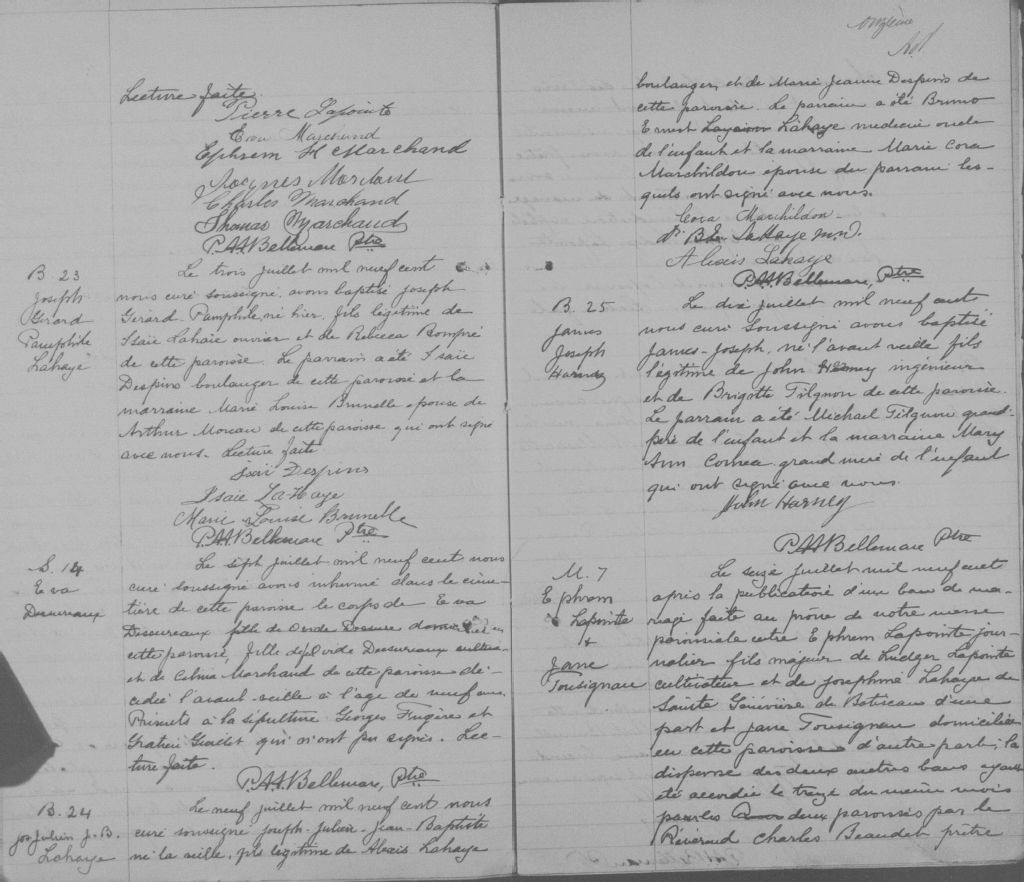 Lecture faite.
Pierre Lapointe
Eva Marchand
Ephrem H Marchand
Jacques Morland
Charles Marchand
Thomas Marchand
P.H. Bellemare Ptre
B. 23
Joseph
Gérard
Pamphile
Lahaye
Le trois juillet mil neuf cent
nous curé soussigné, avons baptisé Joseph
Gérard Pamphile, né hier, fils légitime de
Isaïe Lahaie ouvrier et de Rebecca Bompré
de cette paroisse. Le parrain a été Isaie
Despins boulanger de cette paroisse et la
marraine Marie Louise Brunelle epouse de
Arthur Moreau de cette paroisse qui ont signé
avec nous. Lecture faite
Isaï Despins
Isaie LaHaye
Marie Louise Brunelle
P.H. Bellemare Ptre
S. 14
Eva
Desureaux
Le sept juillet mil neuf cent nous
curé soussigné avons inhumé dans le cime-
tière de cette paroisse le corps de Eva
Dessureaux fille de
cette paroisse, fille de Ovide Dessureaux
et de Celina Marchand de cette paroisse dé-
cédée l'avant-veille à l'age de neuf ans
Présents à la sépulture Georges Frugère et
Gratien qui n'ont pu signer. Lec-
ture faite.
P.H. Bellemare, Ptre
B. 24
Jos Julien J-B.
Lahaye
Le neuf juillet mil neuf cent nous
curé soussigné Joseph-Julien-Jean-Baptiste
né la veille, fils légitime de Alexis Lahaye
onzième
boulanger, et de Marie Jeanne Despins de
cette paroisse. Le parrain a été Bruno
Ernest Lahaye medecin oncle
de l'enfant et la marraine Marie Cora
Marchildon epouse du parrain les-
quels ont signé avec nous.
Cora Marchildon
Dr B.E. LaHaye M.D.
Alexis Lahaye
P.H. Bellemare, Ptre
B. 25
James
Joseph
Harney
Le dix juillet mil neuf cent
nous curé soussigné avons baptisé
James-Joseph, né l'avant veille fils
légitime de John Harney ingénieur
et de Brigitte Tilgnon de cette paroisse.
Le parrain a été Michael Tilgnon grand-
père de l'enfant et la marraine Mary
Ann Comea grand mère de l'enfant
qui ont signé avec nous.
John Harney
P.H. Bellemare Ptre
M. 7
Ephrem
Lapointe
+
Jane
Tousignan
Le seize juillet mil neuf cent
après la publication d'un ban de ma-
riage faite au prône de notre messe
paroissiale entre Ephrem Lapointe jour-
nalier fils majeur de Ludger Lapointe
cultivateur et de Josephine Lahaye de
Sainte Géneviève de Batiscan d'une
part et Jane Tousignan domiciliée
en cette paroisse d'autre part; la
dispense des deux autres bans ayant
été accordée le treize du même mois
pour les deux paroisses par le
Révérend Charles Beaudet prêtre